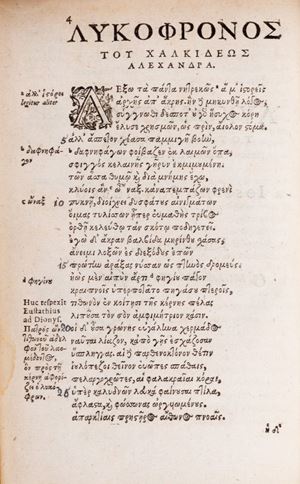 4
ΛΥΚΟΦΡΟΝΟΣ
ΤΟΥ ΧΑΛΚΙΔΕΩΣ
ΑΛΕΞΑΝΔΡΑ.
ΛΕΞΩ τὰ πάντα νητρεκῶς ἅ μ' ἱστορεῖς
ἀρχῆς ἀπ' ἄκρης. ἢν δὲ μηκυνθῇ λόγος,
σύγγνωθι δέσποτ'· οὐ γὰρ ἥσυχος κόρη
ἔλυσε χρησμῶν, ὡς πρὶν, αἰόλον στόμα.
5 ἀλλ' ἄσπετον χέασα παμμιγῆ βοὴν,
δαφνηφάγων φοίβαζεν ἐκ λαιμῶν ὄπα,
σφιγγὸς κελαινῆς γῆρυν ἐκμιμουμένη.
τῶν ἅσσα θυμῷ καὶ διὰ μνήμης ἔχω,
κλύοις ἂν ὦναξ. κἀναπεμπάζων φρενὶ
10 πυκνῇ, διοίχνει δυσφάτους αἰνιγμάτων
οἴμας τυλίσσων ᾗπερ εὐμαθὴς τρίβος
ὀρθῇ κελεύθῳ τἀν σκότῳ ποδηγετεῖ.
ἐγὼ δ' ἄκραν βαλβῖδα μηρίνθου σχάσας,
ἄνειμι λοξῶν ἐς διεξόδους ἐπῶν
15 πρώτην ἀράξας νύσσαν ὡς πτηνὸς δρομεύς.
ἠὼς μὲν αἰπὺν ἄρτι φηγίου πάγον
κραιπνοῖς ὑπερποτᾶτο πηγάσου πτεροῖς,
τιθωνὸν ἐν κοίτῃσι τῆς κέρνης πέλας
λιποῦσα τὸν σὸν ἀμφιμήτριον κάσιν.
20 οἱ δ' οὖσα γρώνης εὐγάλωκα χερμάδος
ναῦται λίαζον, κἀπὸ γῆς ἐσχάζοσαν
ὕσπληγγας. αἱ δὲ παρθενοκτόνον θέτιν
ἰουλόπεζοι θεῖνον εὐῶπες σπάθαις,
πελαργοχρῶτες, αἱ φαλακραῖαι κόραι,
25 ὑπὲρ καλυδνῶν λευκὰ φαίνουσαι πτίλα,
ἄφλαστα, καὶ φώσσωνας ὠργυιωμένους
ἀπαρκτίαις πρηστῆρος αἴθωνος πνοαῖς.
legitur aliter
δαφνηφάγων
ὦναξ
φηγίου
Huc respexit
Eustathius
ad Dionys.